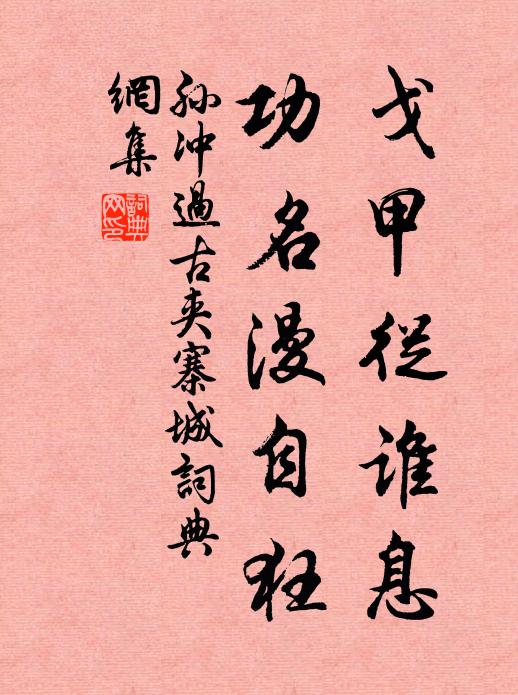 戈甲從誰息
功名漫自狂
孙冲過古夹寨城詞典
網集
詞典
网印